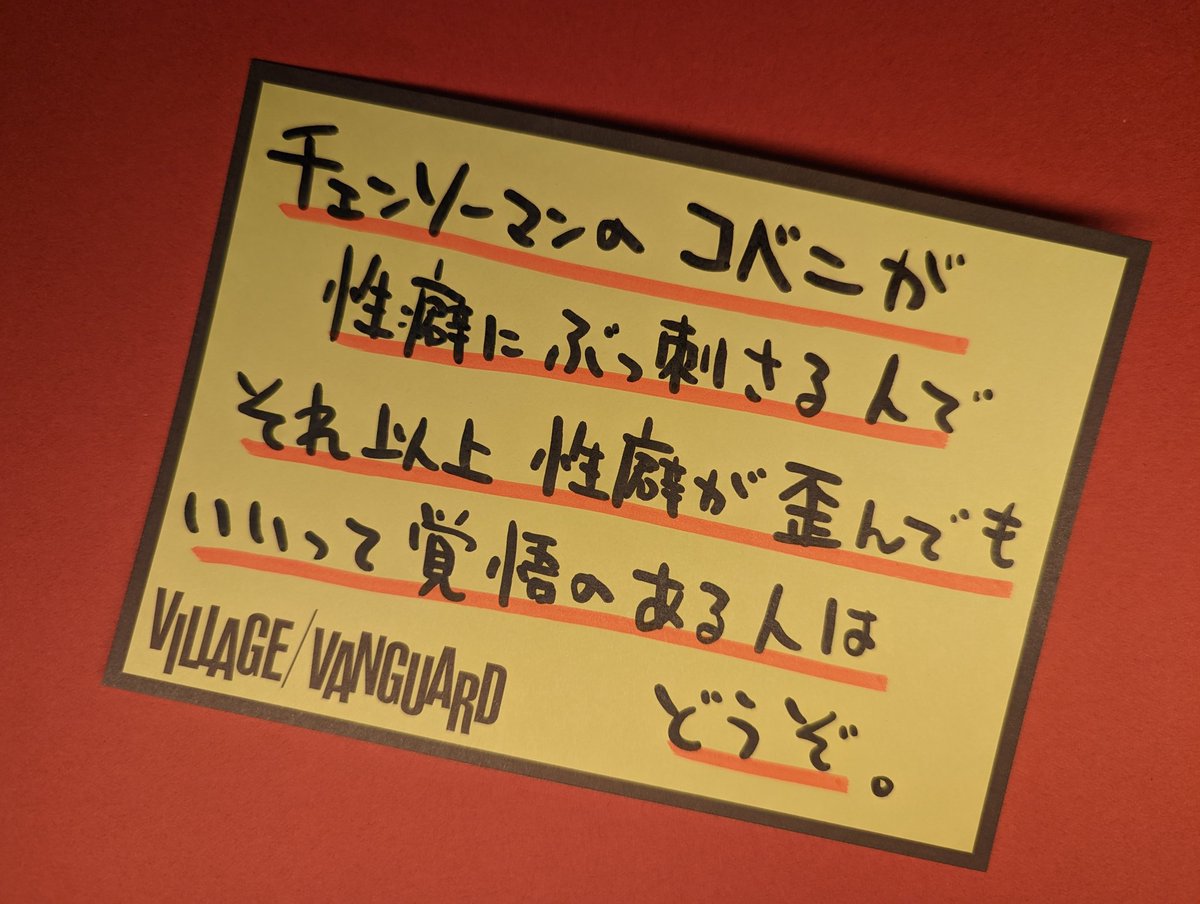 チェンソーマンの コベニが
性癖に ぶっ刺さる人で
それ以上 性癖が歪んでも
いいって覚悟のある人は
どうぞ。
VILLAGE/VANGUARD